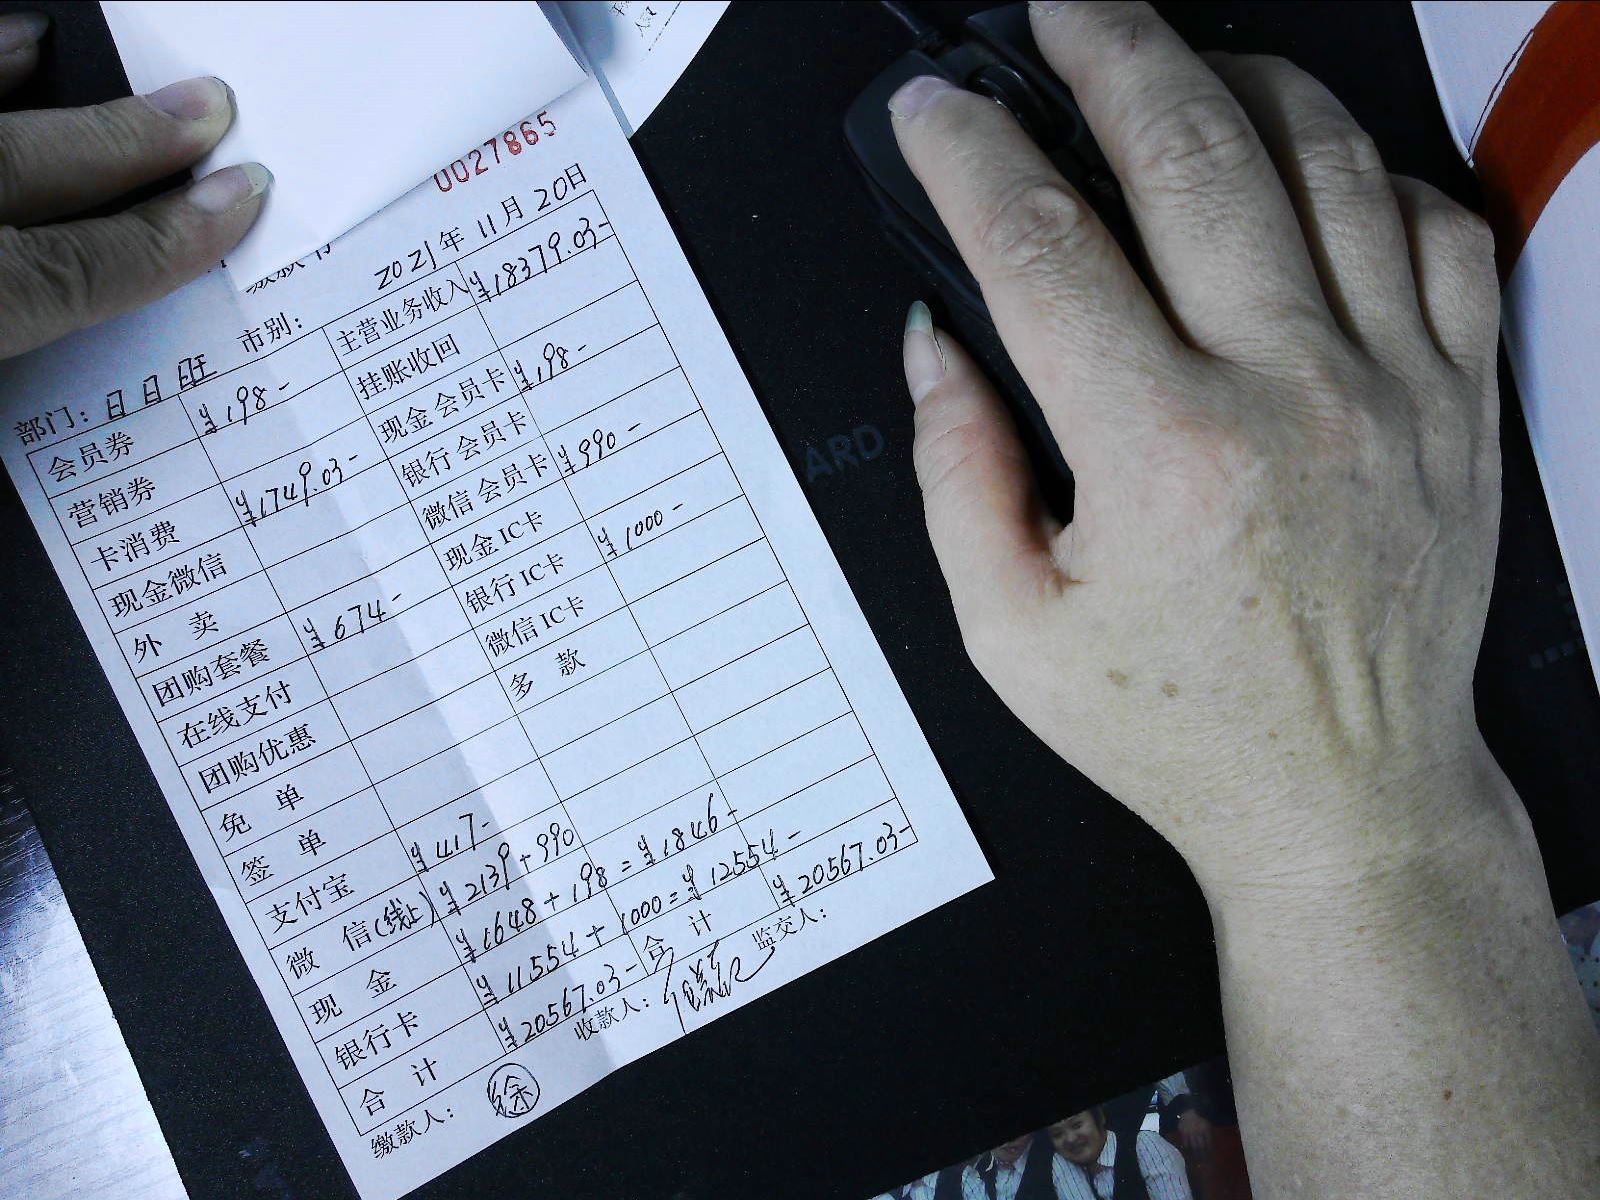 0027865
2021年 11月 20日
部门: 日日旺 市别:
会员券 ¥198- 主营业务收入 ¥18379.03-
营销券 挂账收回
卡消费 ¥1749.03- 现金会员卡 ¥198-
现金微信 银行会员卡
外 卖 微信会员卡 ¥990-
团购套餐 ¥674- 现金IC卡
在线支付 银行IC卡 ¥1000-
团购优惠 微信IC卡
免 单 多 款
签 单
支付宝 ¥417-
微 信(线上) ¥2139+990
现 金 ¥1648+198=¥1846-
银行卡 ¥11554+1000=¥12554-
合 计 ¥20567.03- 合 计 ¥20567.03-
缴款人: 徐 收款人: 监交人:
ARD